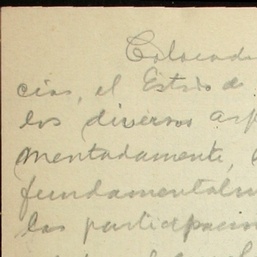 Colocad
cias, el Estado de
los diversos asp
mentadamente,
fundamentalm
las participacion